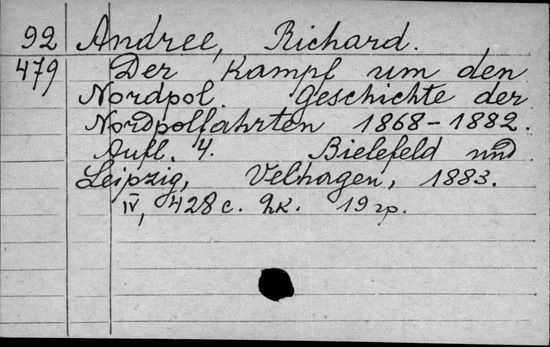 92 Andree, Richard.
479 Der Kampf um den
Nordpol. Geschichte der
Nordpolfahrten 1868-1882.
Aufl. 4. Bielefeld und
Leipzig, Velhagen, 1883.
IV, 428 с. 2к. 19 гр.